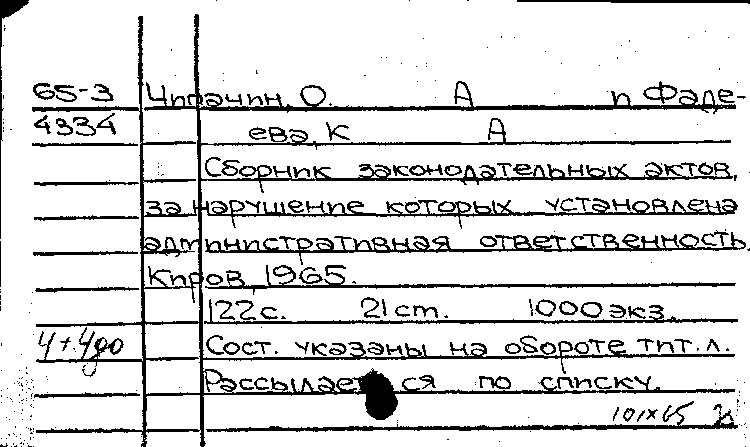 65-3 Чипачин, О. А и Фаде-
4334 ева, К А
Сборник законодательных актов,
за нарушение которых установлена
административная ответственность.
Киров, 1965.
122 с. 21 ст. 1000 экз.
Ч+Чдо Сост. указаны на обороте тит. л.
Рассылается по списку.
101x65